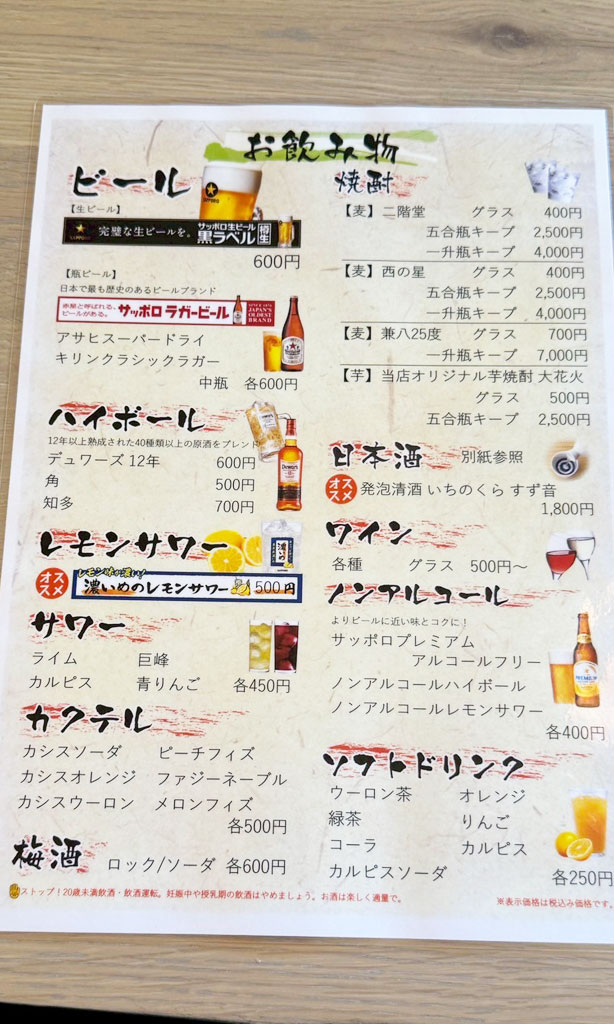 お飲み物
ビール
【生ビール】
完璧な生ビールを。 サッポロ生ビール 黒ラベル 樽生
600円
【瓶ビール】
日本で最も歴史のあるビールブランド
赤星と呼ばれる、
ビールがある。
サッポロ ラガービール
SINCE 1877
JAPAN'S
OLDEST
BRAND
アサヒスーパードライ
キリンクラシックラガー
中瓶 各600円
ハイボール
12年以上熟成された40種類以上の原酒をブレンド
デュワーズ 12年 600円
角 500円
知多 700円
Dewar's
レモンサワー
オススメ
レモン味が濃い!
濃いめのレモンサワー 500円
濃いめ
サワー
ライム 巨峰
カルピス 青りんご 各450円
カクテル
カシスソーダ ピーチフィズ
カシスオレンジ ファジーネーブル
カシスウーロン メロンフィズ
各500円
梅酒 ロック/ソーダ 各600円
焼酎
【麦】二階堂 グラス 400円
五合瓶キープ 2,500円
一升瓶キープ 4,000円
【麦】西の星 グラス 400円
五合瓶キープ 2,500円
一升瓶キープ 4,000円
【麦】兼八25度 グラス 700円
一升瓶キープ 7,000円
【芋】当店オリジナル芋焼酎 大花火
グラス 500円
五合瓶キープ 2,500円
日本酒 別紙参照
オススメ 発泡清酒 いちのくら すず音
1,800円
ワイン
各種 グラス 500円～
ノンアルコール
よりビールに近い味とコクに！
サッポロプレミアム
アルコールフリー
ノンアルコールハイボール
ノンアルコールレモンサワー
各400円
PREMIUM
ソフトドリンク
ウーロン茶 オレンジ
緑茶 りんご
コーラ カルピス
カルピスソーダ
各250円
ストップ！20歳未満飲酒・飲酒運転。妊娠中や授乳期の飲酒はやめましょう。お酒は楽しく適量で。
※表示価格は税込み価格です。